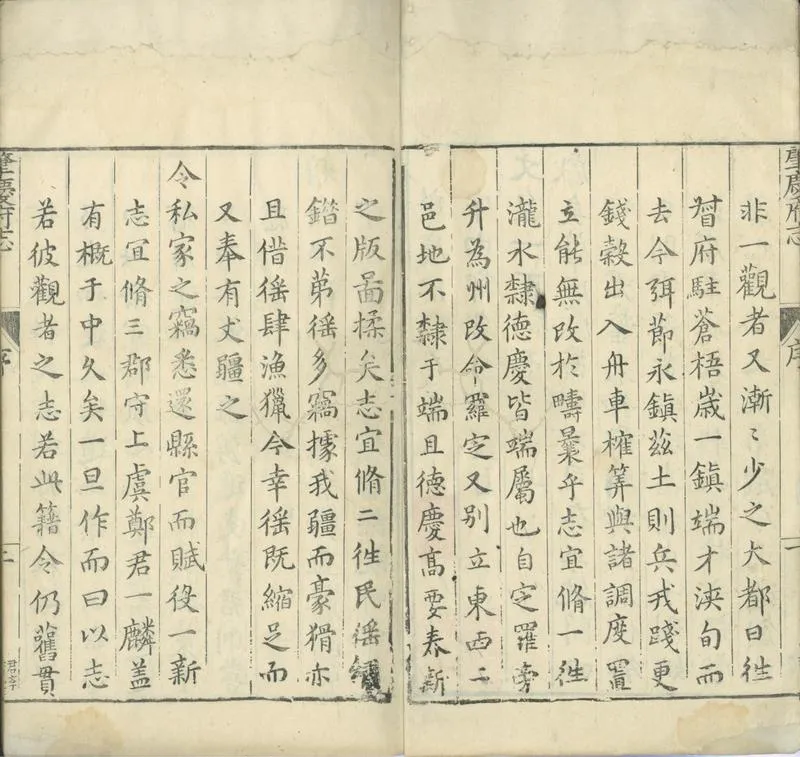 肇慶府志 序
非一觀者又漸〻少之大都曰徃
督府駐蒼梧歲一鎮端才浹旬而
去今弭節永鎮茲土則兵戎踐更
錢穀出入舟車榷筭與諸調度置
立能無改於疇曩乎志宜脩一徃
瀧水隸德慶皆端屬也自定羅旁
升為州改命羅定又別立東西二
邑地不隸于端且德慶高要春新
之版啚揉矣志宜脩二徃民徭
錯不第徭多竊據我疆而豪猾亦
且借徭肆漁獵今幸徭既縮足而
又奉有丈疆之
令私家之竊悉還縣官而賦役一新
志宜脩三郡守上虞鄭君一麟盖
有概于中久矣一旦作而曰以志
若彼觀者之志若此籍令仍舊貫
肇慶府志 序